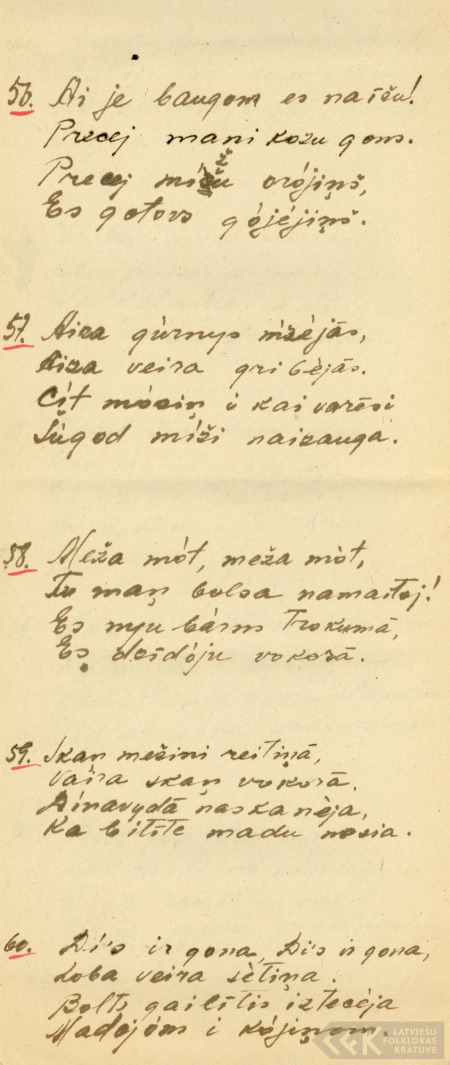 56. Ai je baugom es naīšu!
Precej mani kozu gons.
Precej mížu orójiņš,
Es gotovs gójéjiņš.
57. Aiza gùrnys mīzéjās,
Aiza veira gribéjās.
Cít mósiņ i kai varési
Šùgod míži naizauga.
58. Meža mót, meža mót,
Tu maņ bolsa namaitoj!
Es myu bárns Trokumā,
Es dzīdóju vokorā.
59. Skaņ mežini reitiņā,
Vaira skaņ vokorā.
Dínavydā naskanéja,
Ka bitīte madu nesia.
60. Dí's ir gona, Dí's ir gona,
Loba veira sétiņa.
Bolts gailītis iztecéja
Madojóm i kójiņom.
LATVIEŠU
FOLKLORAS
KRĀTUVE